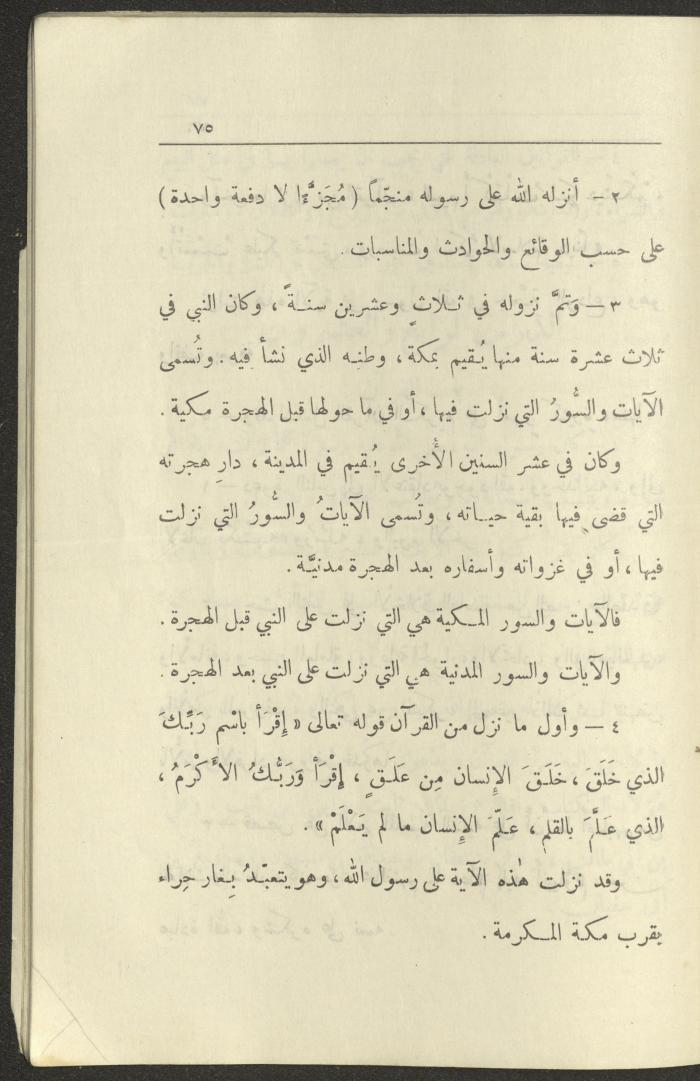 ٧٥
٢ - أنزله الله على رسوله منجّماً ( مُجَزَّءًا لا دفعة واحدة )
على حسب الوقائع والحوادث والمناسبات .
٣ — وَتمَّ نزوله في ثلاثٍ وعشرين سنةً ، وكان النبي في
ثلاث عشرة سنة منها يُقيم بمكة ، وطنه الذي نشأ فيه . وتُسمى
الآيات والسُّورُ التي نزلت فيها ، أو في ما حولها قبل الهجرة مكية .
وكان في عشر السنين الأُخرى يُقيم في المدينة ، دارِ هجرته
التي قضى فيها بقية حياته ، وتُسمى الآياتُ والسُّورُ التي نزلت
فيها ، أو في غزواته وأسفاره بعد الهجرة مدنيَّة .
فالآيات والسور المكية هي التي نزلت على النبي قبل الهجرة .
والآيات والسور المدنية هي التي نزلت على النبي بعد الهجرة .
٤ — وأول ما نزل من القرآن قوله تعالى « إِقْرَأ باسْم رَبِّكَ
الذي خَلَقَ ، خَلَقَ الإِنسان مِن عَلَقٍ ، إِقْرَأ وَرَبُّكُ الأَكْرَمُ ،
الذي عَلَّمَ بالقلم ، عَلّمَ الإِنسان ما لم يَعْلَمْ » .
وقد نزلت هٰذه الآية على رسول الله ، وهو يتعبّدُ بِغار حِراء
يقرب مكة المكرمة .